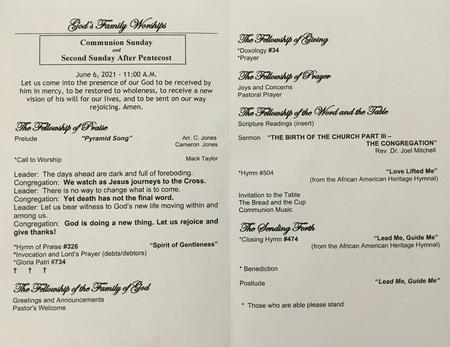 God's Family Worships
Communion Sunday
and
Second Sunday After Pentecost
June 6, 2021 - 11:00 A.M.
Let us come into the presence of our God to be received by
him in mercy, to be restored to wholeness, to receive a new
vision of his will for our lives, and to be sent on our way
rejoicing. Amen.
The Fellowship of Praise
Prelude "Pyramid Song" Arr. C. Jones
Cameron Jones
*Call to Worship Mack Taylor
Leader: The days ahead are dark and full of foreboding.
Congregation: We watch as Jesus journeys to the Cross.
Leader: There is no way to change what is to come.
Congregation: Yet death has not the final word.
Leader: Let us bear witness to God's new life moving within and
among us.
Congregation: God is doing a new thing. Let us rejoice and
give thanks!
*Hymn of Praise #326 "Spirit of Gentleness"
*Invocation and Lord's Prayer (debts/debtors)
*Gloria Patri #734
† † †
The Fellowship of the Family of God
Greetings and Announcements
Pastor's Welcome
The Fellowship of Giving
*Doxology #34
*Prayer
The Fellowship of Prayer
Joys and Concerns
Pastoral Prayer
The Fellowship of the Word and the Table
Scripture Readings (insert)
Sermon "THE BIRTH OF THE CHURCH PART III –
THE CONGREGATION"
Rev .Dr. Joel Mitchell
*Hymn #504 "Love Lifted Me"
(from the African American Heritage Hymnal)
Invitation to the Table
The Bread and the Cup
Communion Music
The Sending Forth
*Closing Hymn #474 "Lead Me, Guide Me"
(from the African American Heritage Hymnal)
* Benediction
Postlude "Lead Me, Guide Me"
* Those who are able please stand